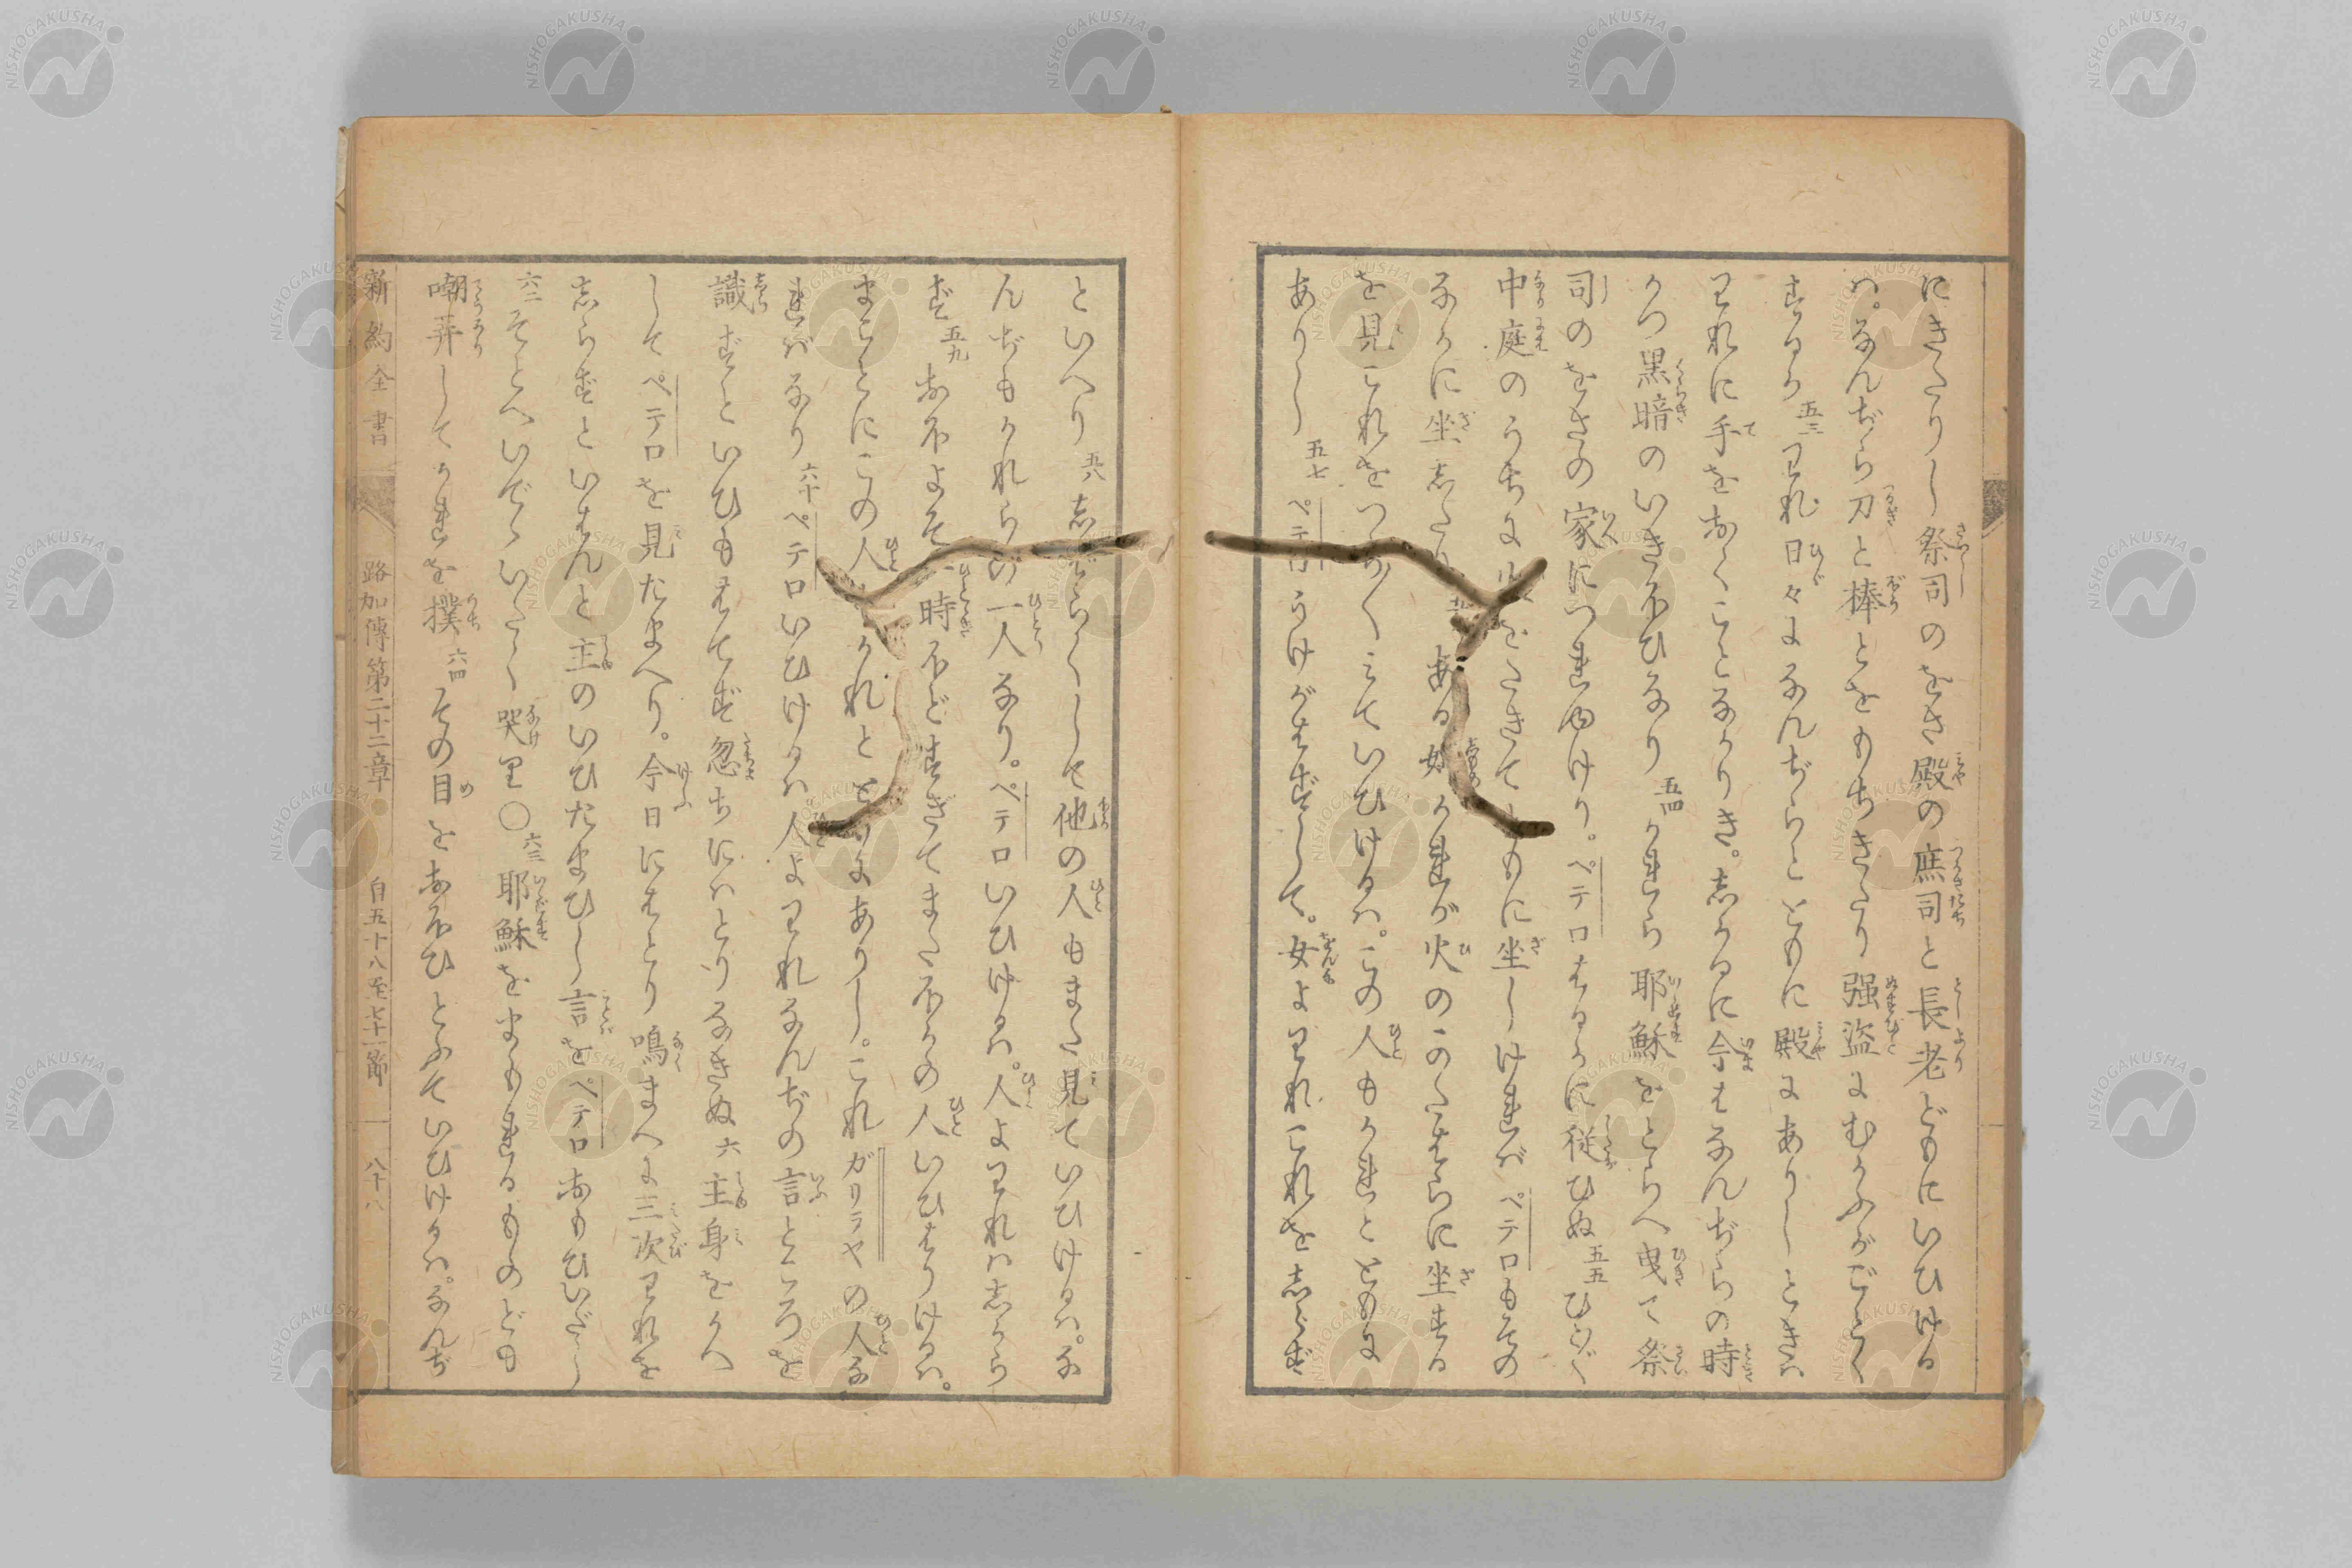 にきたりし祭司のをさ殿の庶司と長老どもにいひける
ハ。なんぢら刀と棒とをもちきたり强盜にむかふがごとく
するか五三われ日々になんぢらとともに殿にありしときハ
われに手をおくことなかりき。志かるに今はなんぢらの時
かつ黒暗のいきほひなり五四かれら耶穌をとらへ曳て祭
司のをさの家につれゆけり。ペテロはるかに従ひぬ五五ひとびと
中庭のうちに をたきて もに坐しけれバペテロもその
なかに坐志たり ある かれが火のこのたはらに坐する
を見これをつら〱みていひけるハ。この人もかれとともに
ありし五七ペテロうけがはずして。女よわれこれを志らず
といへり五八志バらくして他の人もまた見ていひけるハ。な
んぢもかれらの一人なり。ペテロいひけるハ。人よわれハ志から
ず五九おほよそ一時ほどすぎてまたほかの人いひはりけるハ。
まことにこの人 かれとともにありし。これガリラヤの人な
れバなり六十ペテロいひけるハ人よわれなんぢの言ところを
識ずといひもはてず忽ちにハとりなきぬ六一主身をかへ
してペテロを見たまへり。今日にはとり鳴まへに三次われを
志らずといはんと主のいひたまひし言をペテロおもひいだし
六二そとへいでゝいたく哭り〇六三耶穌をまもれるものども
嘲弄してかれを撲六四その目をおほひとふていひけるハ。なんぢ
新約全書 路加傳第二十二章 自五十八至七十一節 八十八